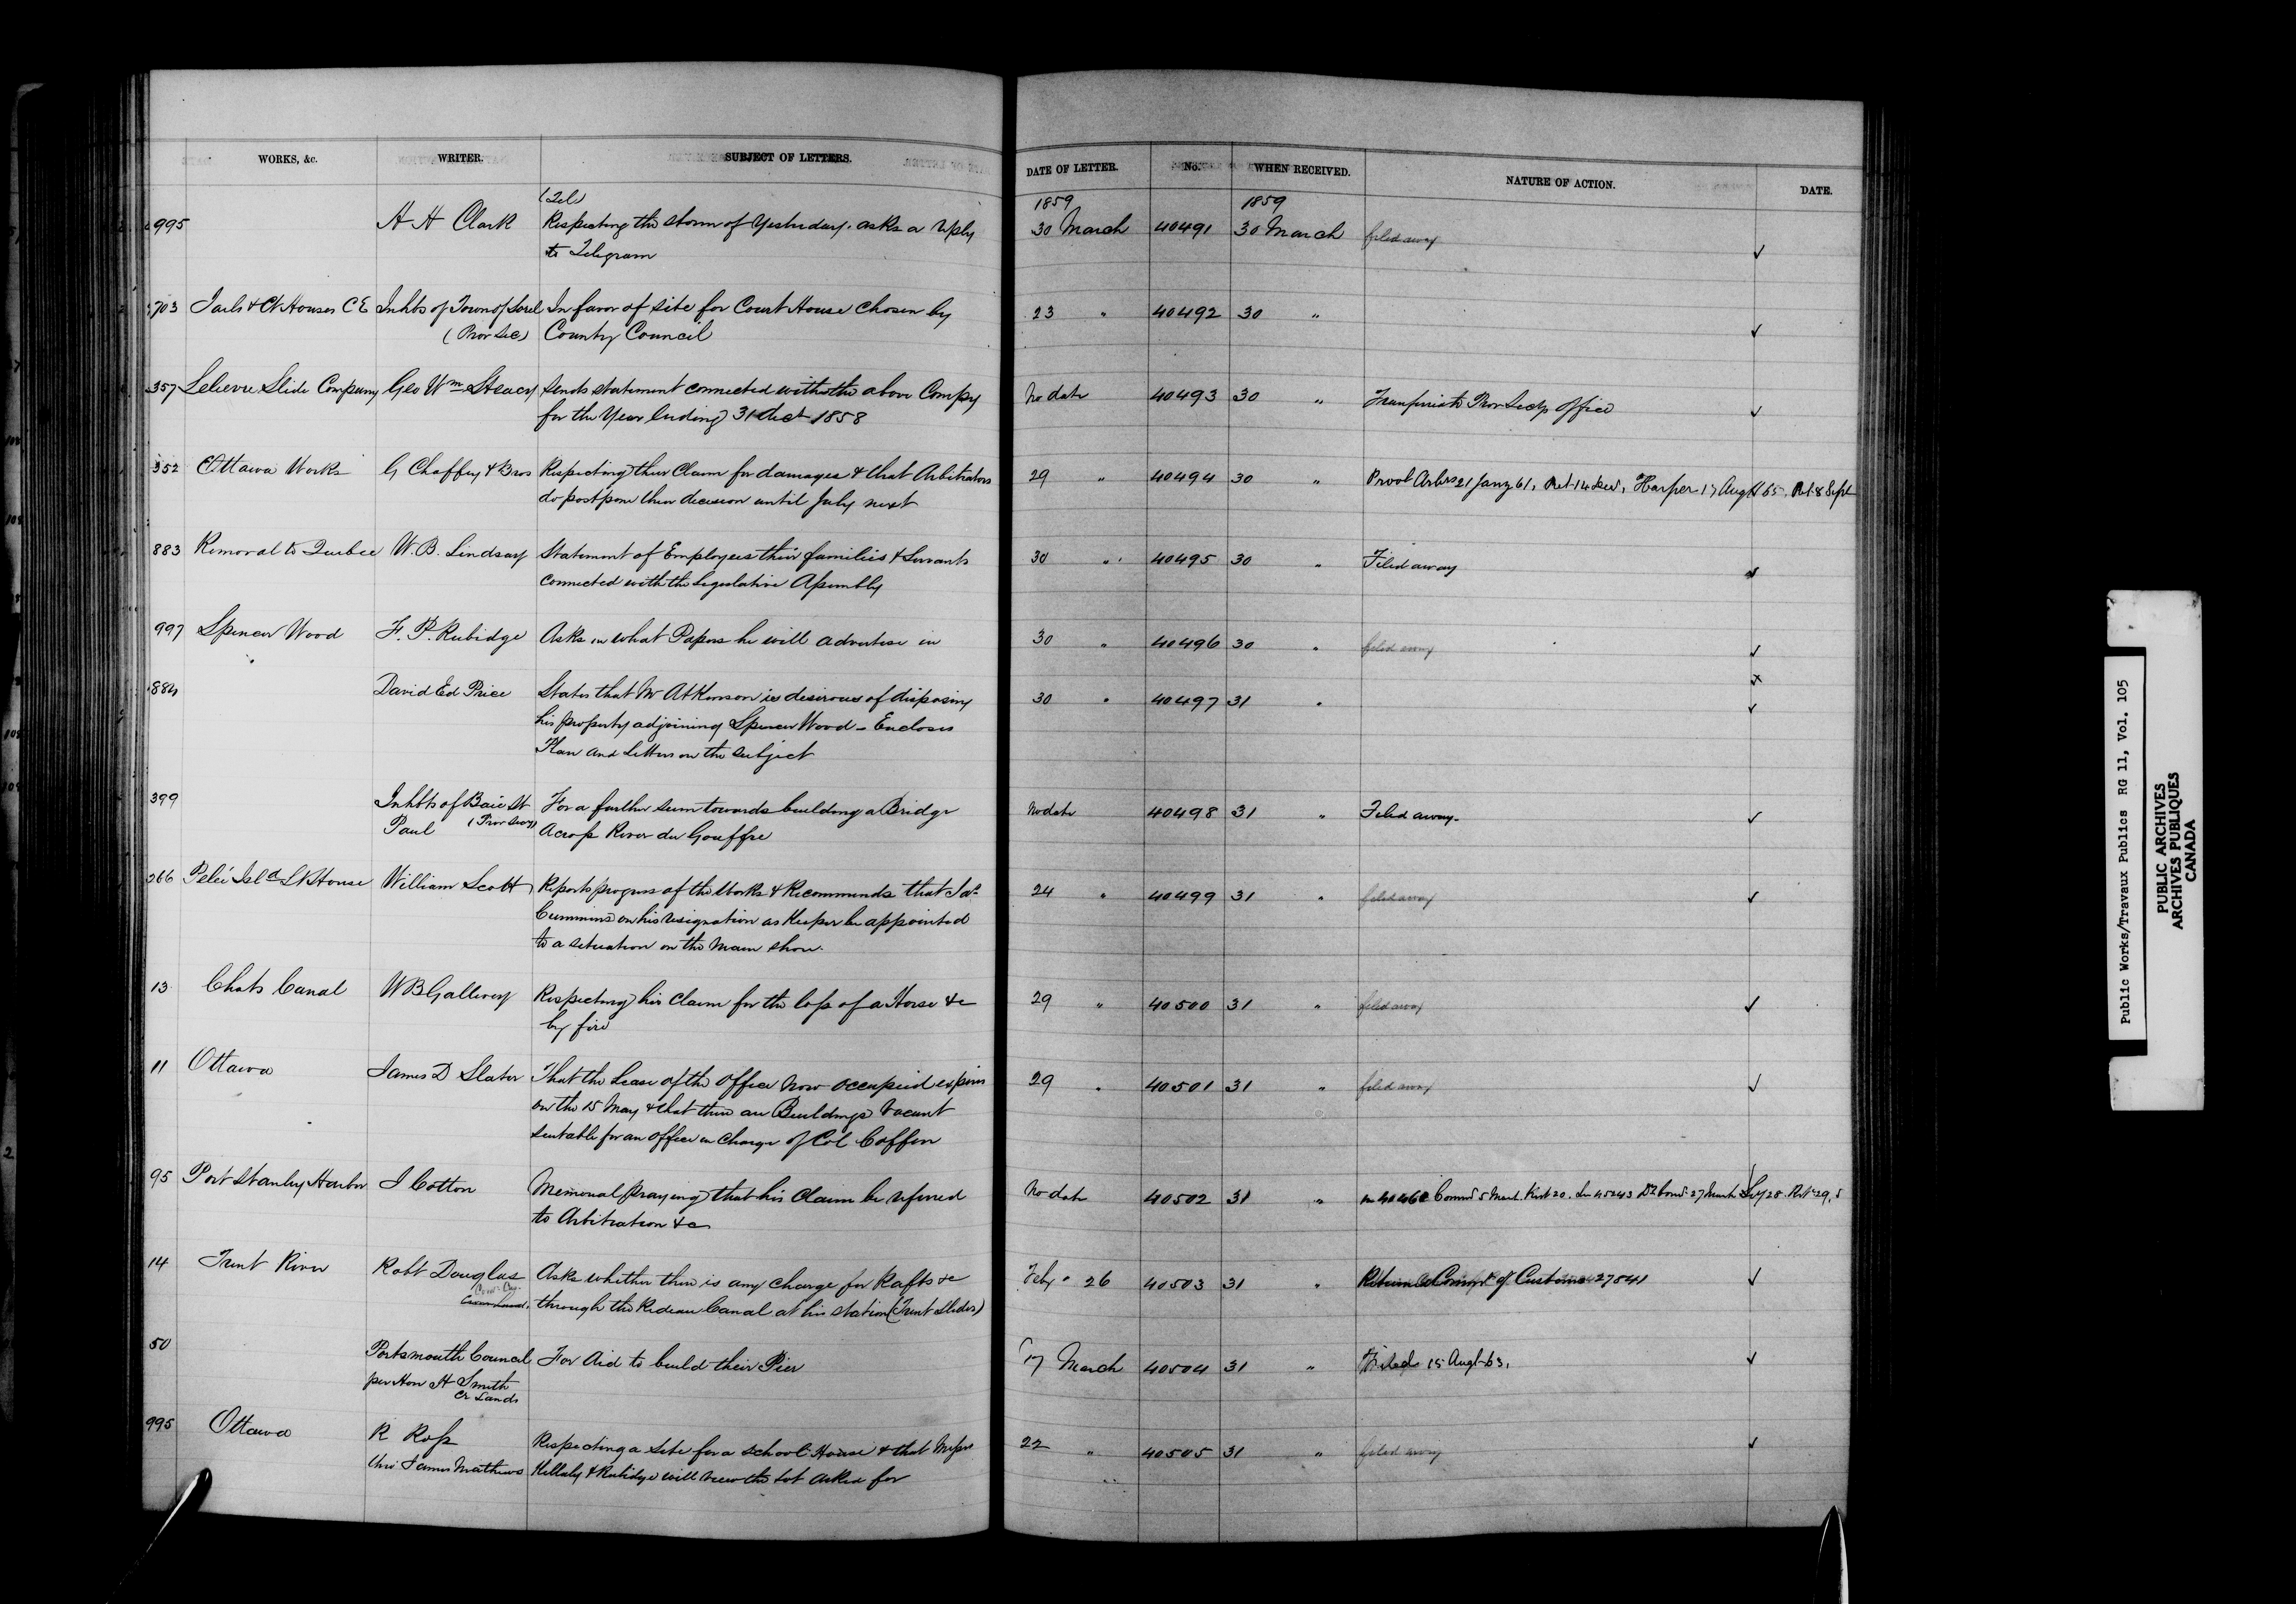 WORKS, &c. WRITER. SUBJECT OF LETTERS. DATE OF LETTER. No. WHEN RECEIVED. NATURE OF ACTION. DATE.
(Tel) 1859 1859
995 H H Clark Respecting the storm of Yesterday. asks a reply 30 March 40491 30 March filed away
to Telegram
703 Jails & Ct Houses C E Inhbts of Town of Sorel In favor of site for Court House chosen by 23 " 40492 30 "
(Prov Sec) County Council
357 Lelievre Slide Company Geo Wm Steacy Sends statement connected with the above Compy No date 40493 30 " Provl Secys office
for the Year Ending 31 Dect 1858
352 Ottawa Works G Chaffey & Bros Respecting their Claim for damages & that Arbitrators 29 " 40494 30 " Provl Arbrs 21 Jany 61, Ret 14 Decr, Harper 17 Augt 65. Ret 8 Sept
do postpone their decision until July next
883 Removal to Quebec W. B. Lindsay Statement of Employees their families & Servants 30 " 40495 30 " Filed away
connected with the Legislative Assembly
997 Spencer Wood F. P. Rubidge Asks in what Papers he will advertise in 30 " 40496 30 " filed away
884 David Ed Price States that Mr Atkinson is desirous of disposing 30 " 40497 31 "
his property adjoining Spencer Wood - Encloses
Plan and Letters on the subject
399 Inhbts of Baie St For a further sum towards building a Bridge No date 40498 31 " Filed away.
Paul (Prov Secy) Across River du Gouffre
266 Pelée Isld Lt House William Scott Reports progress of the Works & Recommends that Jas 24 " 40499 31 " filed away
Cummins on his resignation as Keeper be appointed
to a situation on the Main shore.
13 Chats Canal W B Gallwey Respecting his Claim for the loss of a Horse &c 29 " 40500 31 " filed away
by fire
11 Ottawa James D Slater That the Lease of the Office now occupied expires 29 " 40501 31 " filed away
on the 15 May & that there are Buildings Vacant
suitable for an Office in charge of Col Coffin
95 Port Stanley Harbor J Cotton Memorial praying that his Claim be referred No date 40502 31 "
to Arbitration &c
14 Trent River Robt Douglas Asks whether there is any charge for Rafts &c Feby " 26 40503 31 " of Customs 27841
through the Rideau Canal at his station (Trent Slides)
50 Portsmouth Council For Aid to build their Pier 17 March 40504 31 " Filed 15 Augt 63.
per Hon H Smith
Cr Lands
995 Ottawa R Ross Respecting a Site for a School House & that Messrs 22 " 40505 31 " filed away
thro James Mathews Killaly & Rubidge will view the lot asked for
Public Works/Travaux Publics RG 11, Vol. 105
PUBLIC ARCHIVES
ARCHIVES PUBLIQUES
CANADA